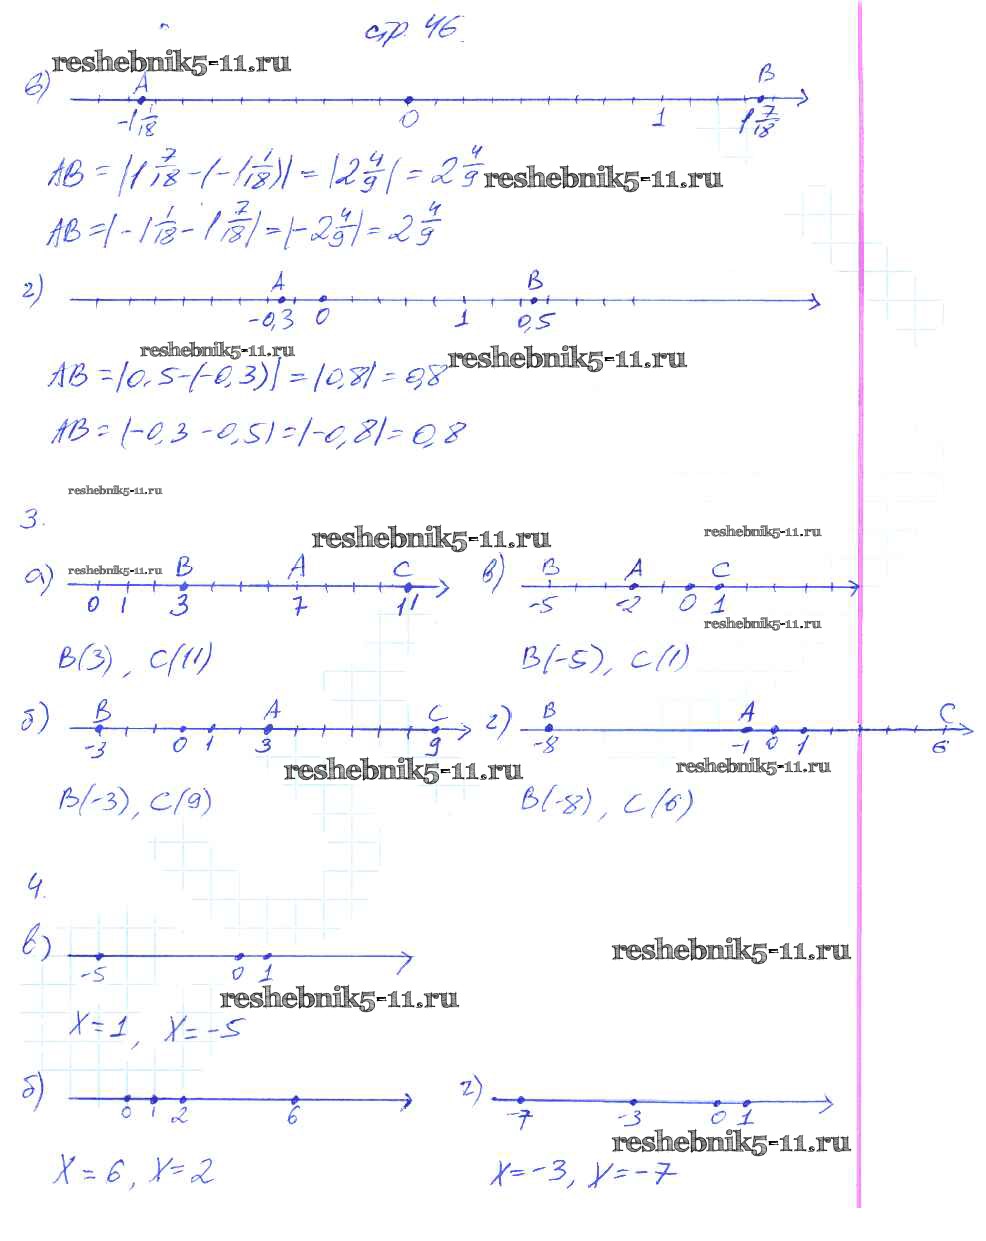 стр. 46.
reshebnik5-11.ru
в) A B
-1 1/18 0 1 1 7/18
AB = |1 7/18 - (-1 1/18)| = |2 4/9| = 2 4/9 reshebnik5-11.ru
AB = |-1 1/18 - 1 7/18| = |-2 4/9| = 2 4/9
г) A B
-0,3 0 1 0,5
reshebnik5-11.ru reshebnik5-11.ru
AB = |0,5-(-0,3)| = |0,8| = 0,8
AB = |-0,3 - 0,5| = |-0,8| = 0,8
reshebnik5-11.ru
3.
reshebnik5-11.ru reshebnik5-11.ru
а) reshebnik5-11.ru B A C в) B A C
0 1 3 7 11 -5 -2 0 1
reshebnik5-11.ru
B(3), C(11) B(-5), C(1)
б) B A C г) B A C
-3 0 1 3 9 -8 -1 0 1 6
reshebnik5-11.ru reshebnik5-11.ru
B(-3), C(9) B(-8), C(6)
4.
в) reshebnik5-11.ru
-5 0 1
reshebnik5-11.ru
X = 1, X = -5
б) г)
0 1 2 6 -7 -3 0 1
reshebnik5-11.ru
X = 6, X = 2 X = -3, X = -7